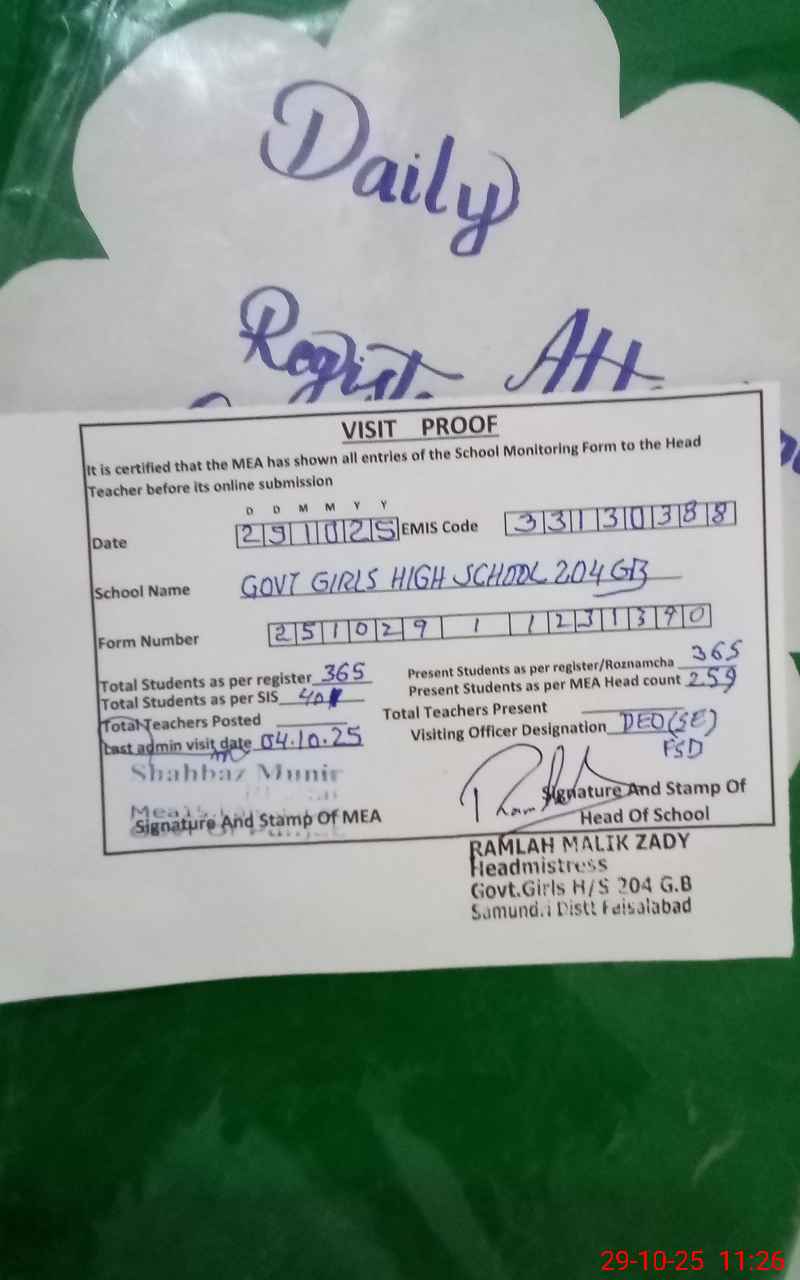 Daily
Regist. Att.
VISIT PROOF
It is certified that the MEA has shown all entries of the School Monitoring Form to the Head
Teacher before its online submission
D D M M Y Y
Date 291025 EMIS Code 33130388
School Name GOVT GIRLS HIGH SCHOOL 204 GB
Form Number 251029 1 1231390
Total Students as per register 365 Present Students as per register/Roznamcha 365
Total Students as per SIS Present Students as per MEA Head count 259
Total Teachers Posted Total Teachers Present
Last admin visit date 04.10.25 Visiting Officer Designation DEO(SE)
FSD
Shahbaz Munir
Signature And Stamp Of MEA
Signature And Stamp Of
Head Of School
RAMLAH MALIK ZADY
Headmistress
Govt.Girls H/S 204 G.B
Samund.i Distt Faisalabad
29-10-25 11:26